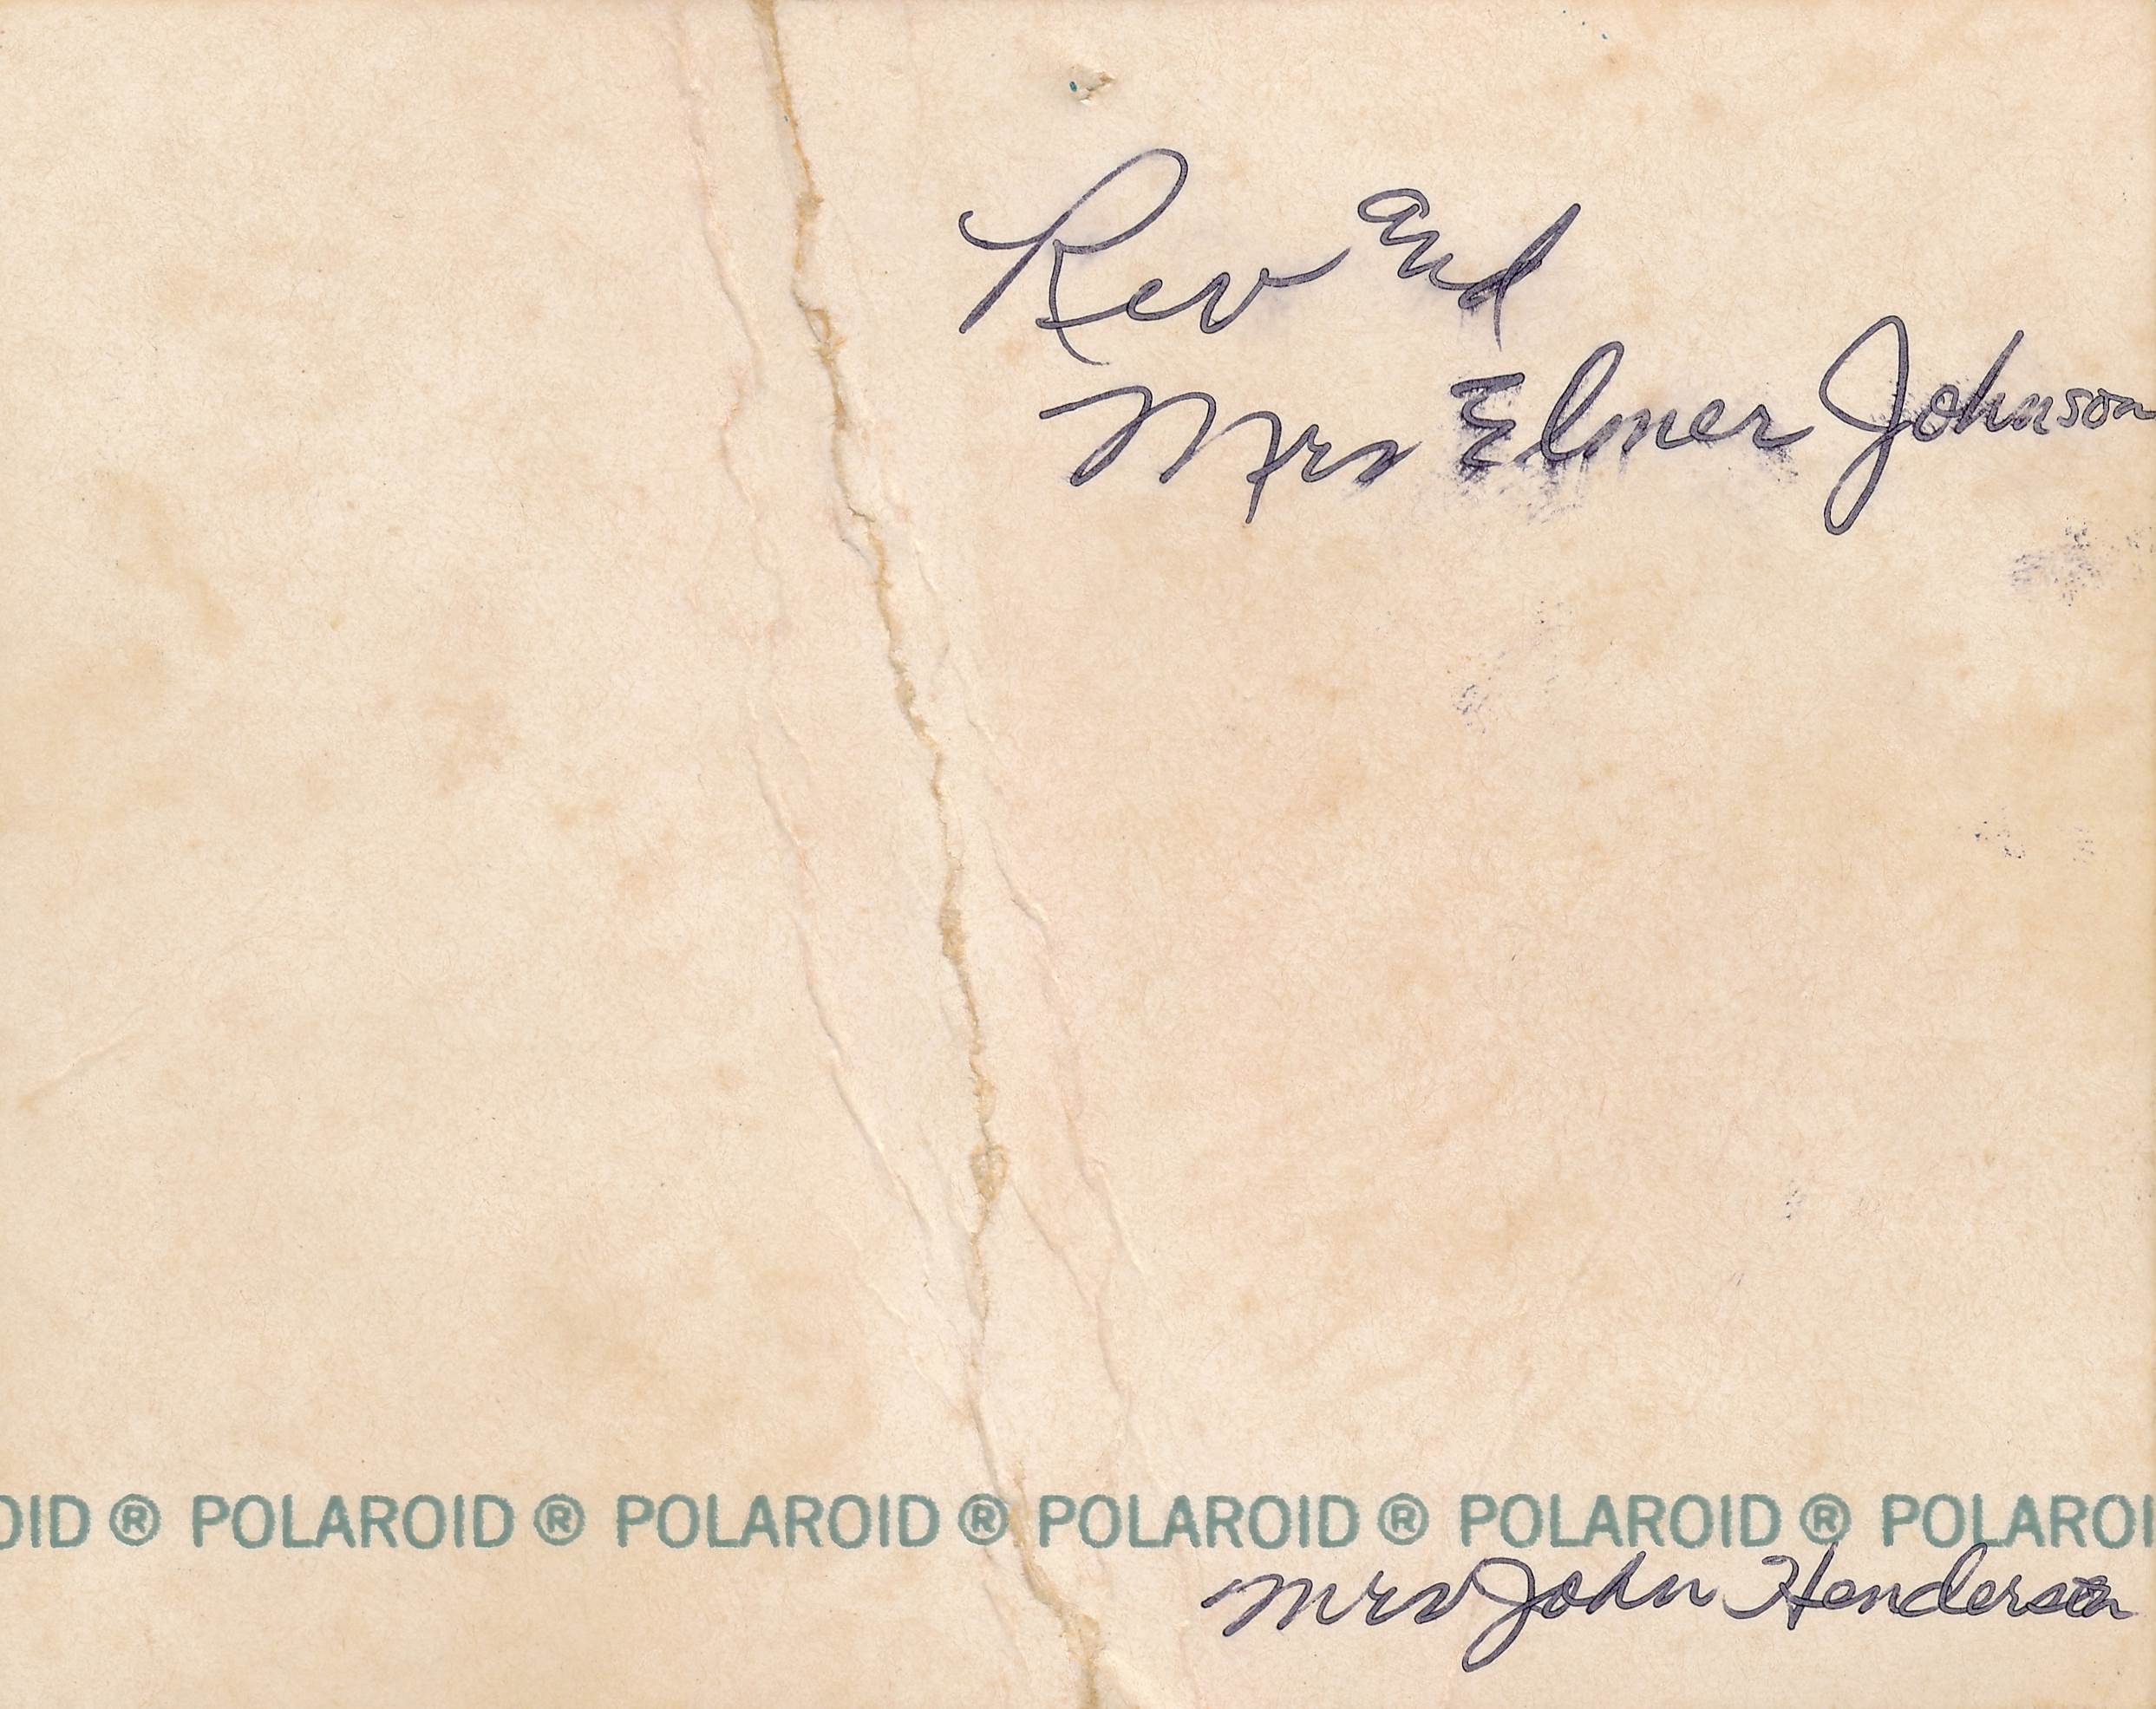 Rev and
Mrs Elmer Johnson
OID ® POLAROID ® POLAROID ® POLAROID ® POLAROID ® POLAROI
Mrs John Henderson